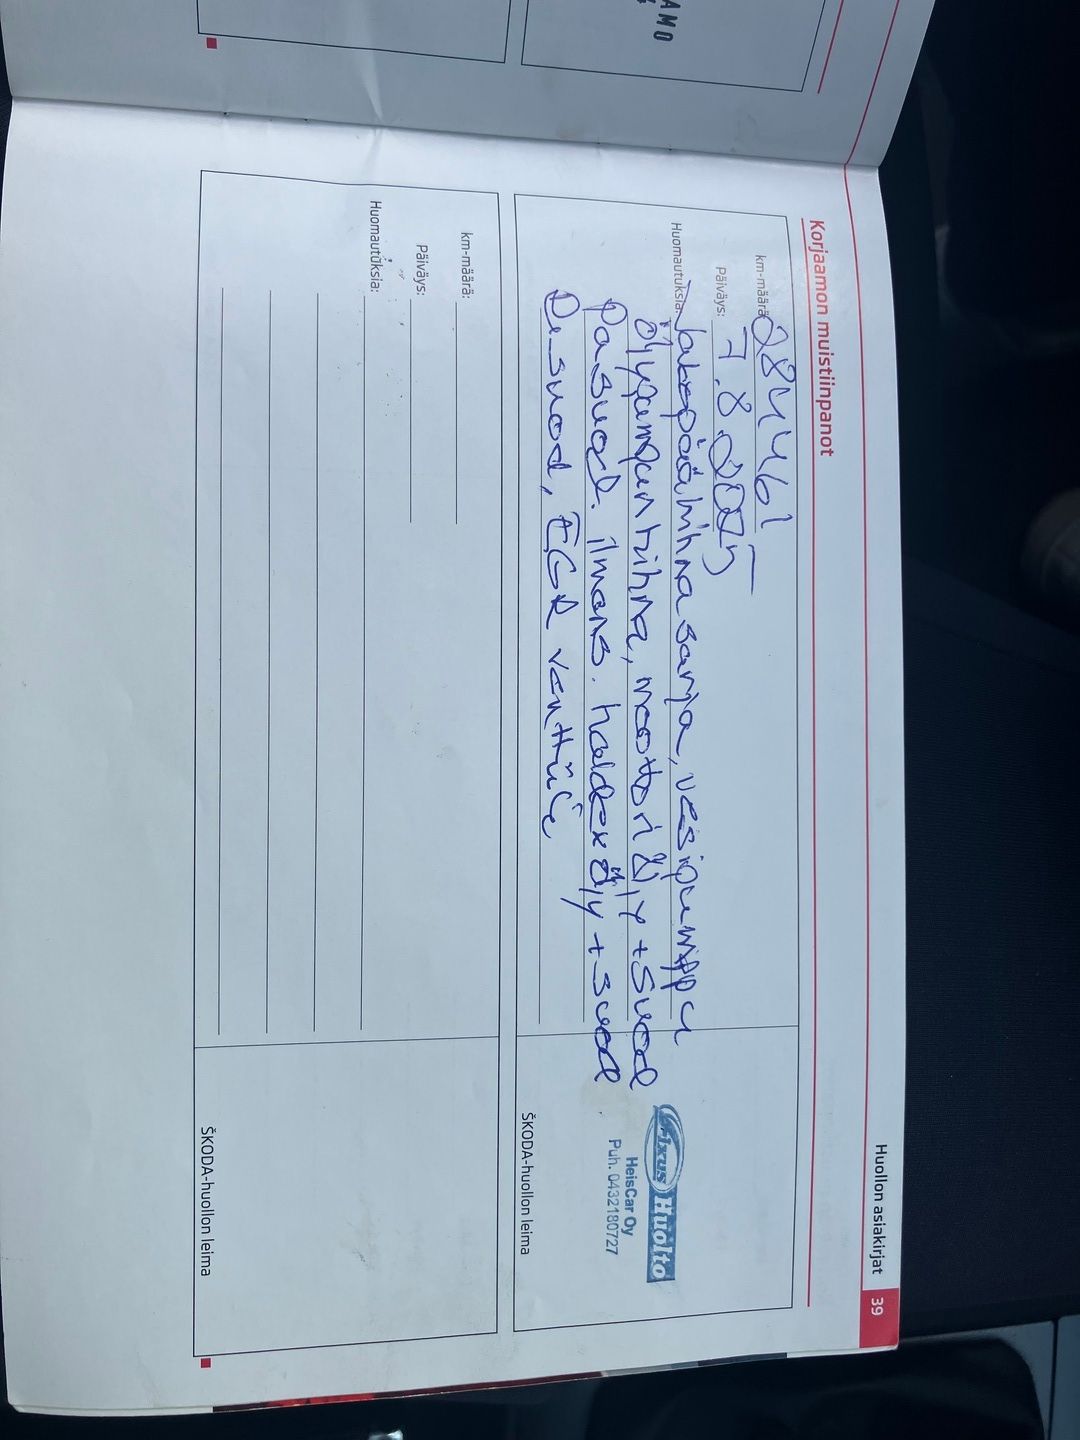 AMO
Huollon asiakirjat 39
Korjaamon muistiinpanot
km-määrä: 284461
Päiväys: 7.8.2025
Huomautuksia: Jakopäänhihnasarja, vesipumppu
öljypumpun hihna, moottoriöljy + suod
pa suod. ilmans. haldex öljy + suod
Pe.suod, EGR venttiili
Fixus Huolto
HeisCar Oy
Puh. 0432180727
ŠKODA-huollon leima
km-määrä:
Päiväys:
Huomautuksia:
ŠKODA-huollon leima